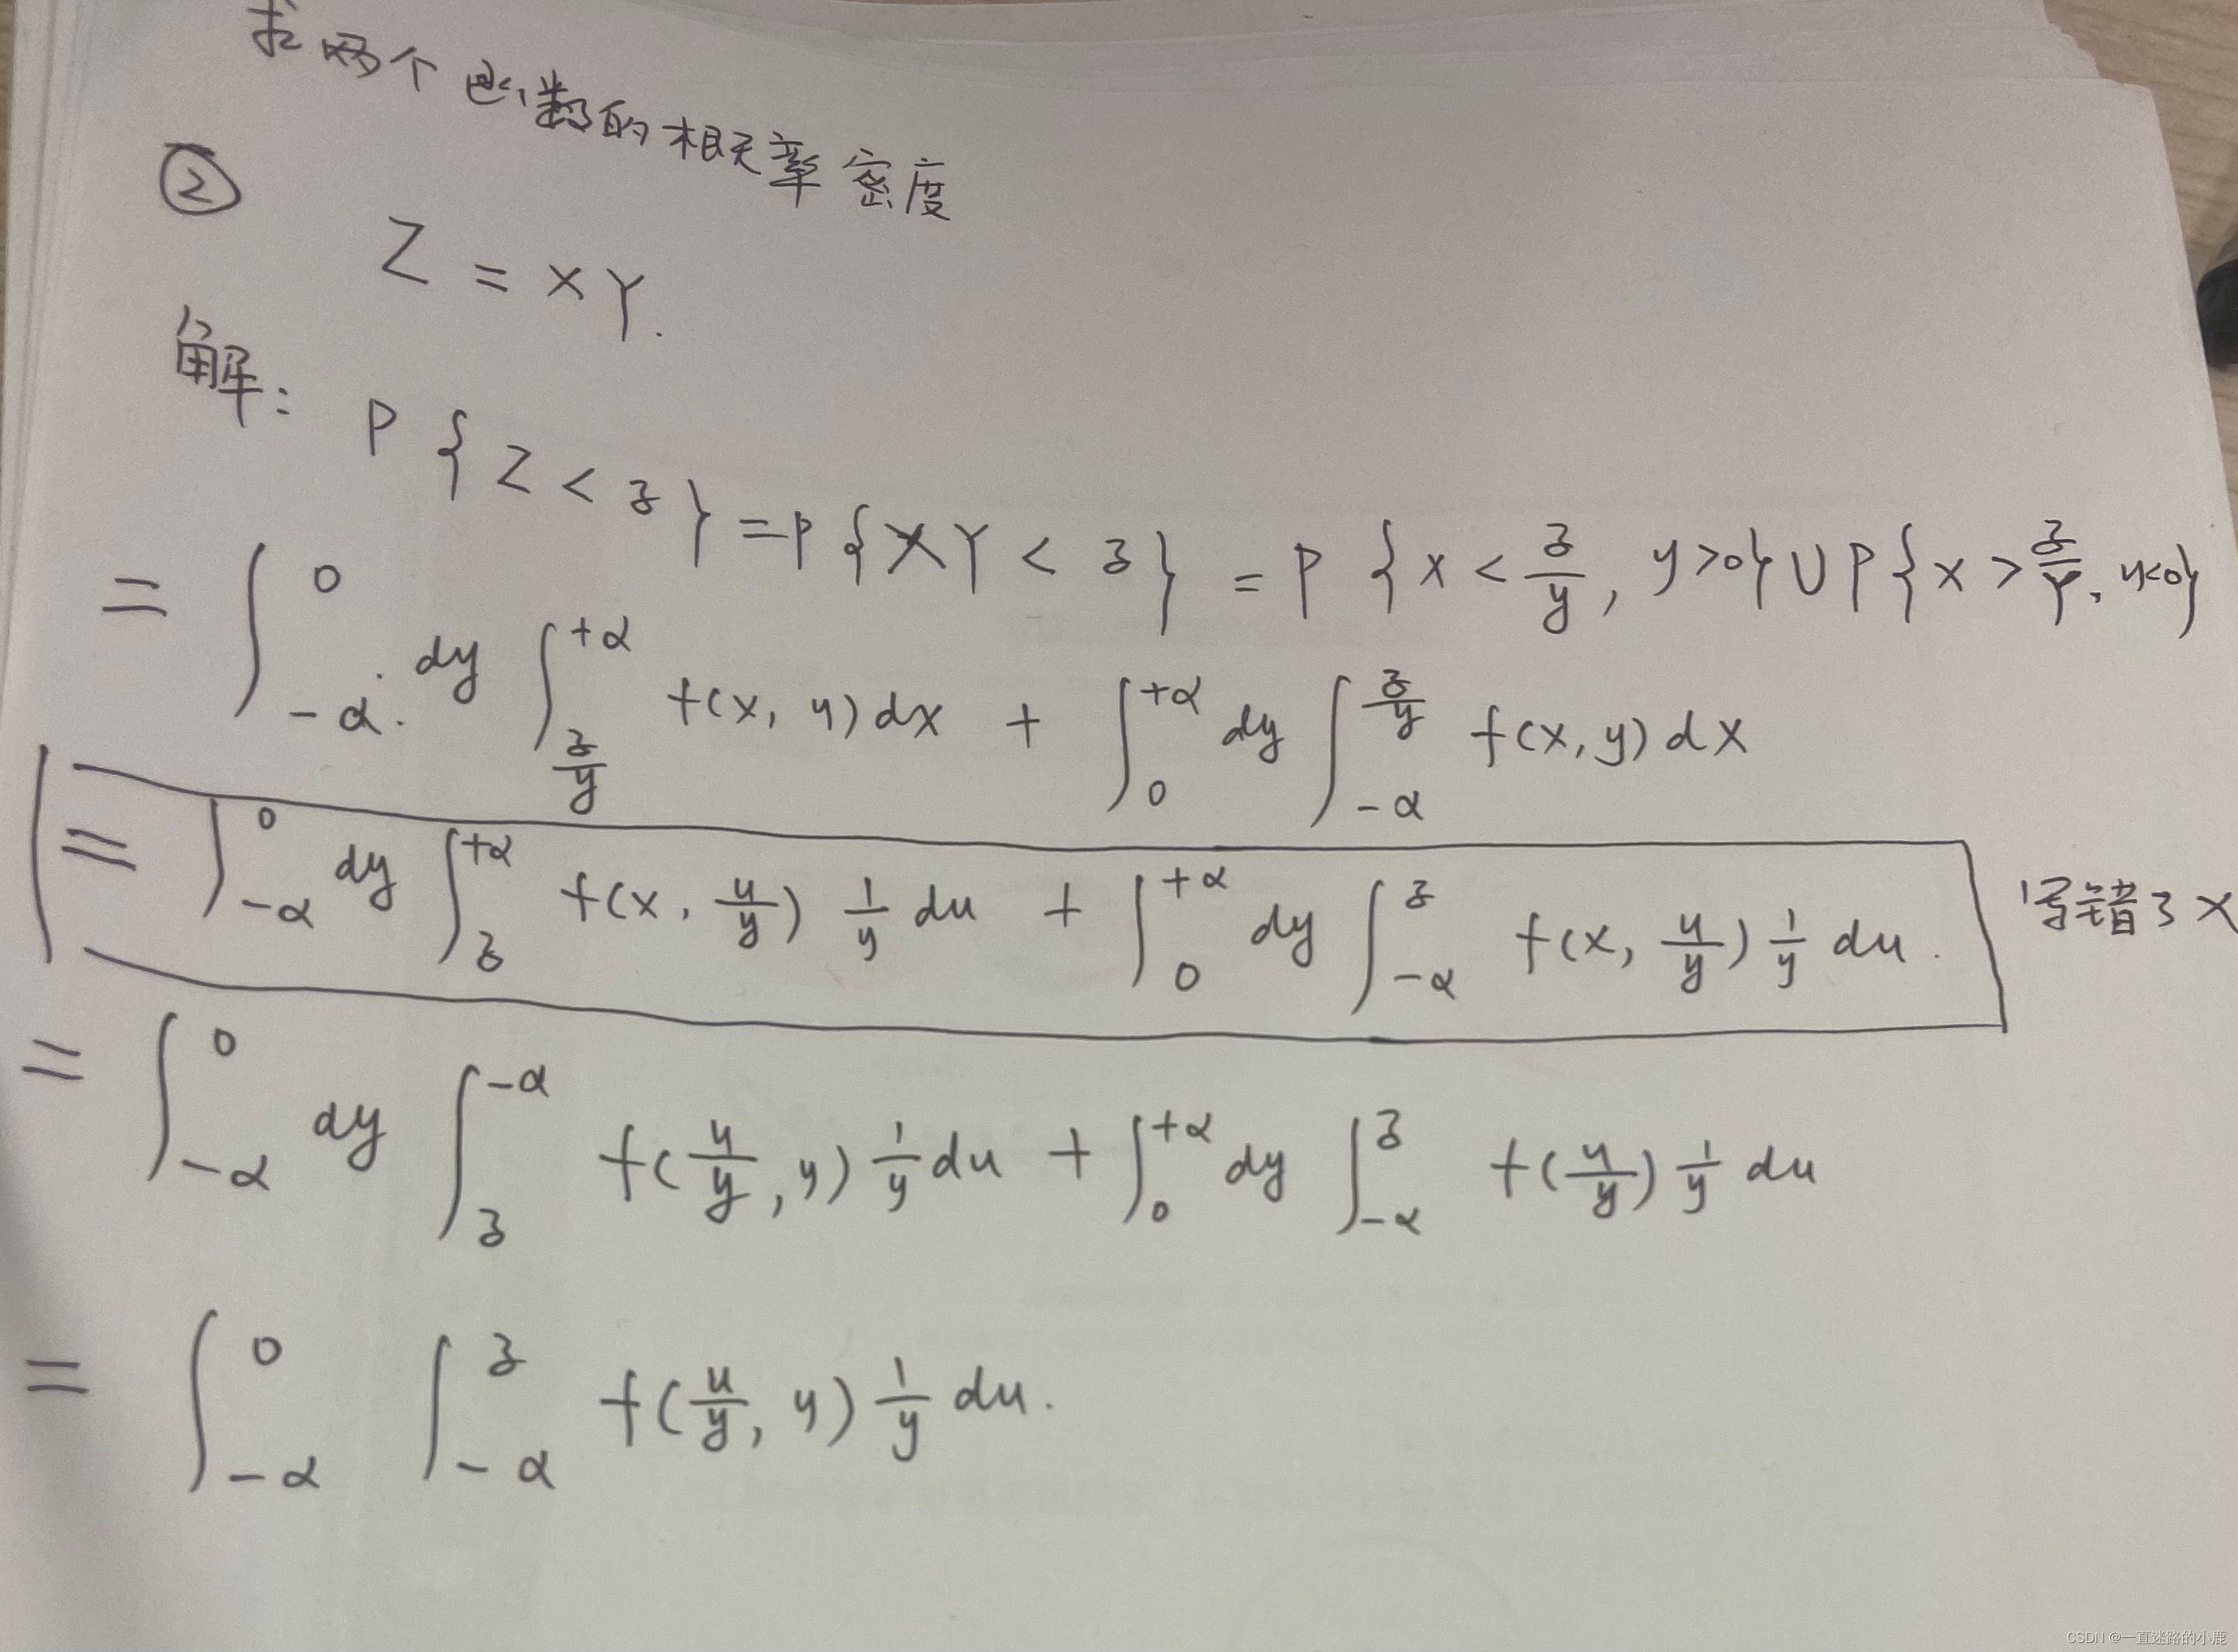 求两个函数的概率密度
② Z = XY.
解: P{Z < z} = P{XY < z} = P{x < z/y, y>0} ∪ P{x > z/Y, y<0}
= ∫_{-∞}^{0} dy ∫_{z/y}^{+∞} f(x, y) dx + ∫_{0}^{+∞} dy ∫_{-∞}^{z/y} f(x, y) dx
= ∫_{-∞}^{0} dy ∫_{z}^{+∞} f(x, u/y) 1/y du + ∫_{0}^{+∞} dy ∫_{-∞}^{z} f(x, u/y) 1/y du. 写错了 X
= ∫_{-∞}^{0} dy ∫_{z}^{-∞} f(u/y, y) 1/y du + ∫_{0}^{+∞} dy ∫_{-∞}^{z} f(u/y) 1/y du
= ∫_{-∞}^{0} ∫_{-∞}^{z} f(u/y, y) 1/y du.
CSDN @一直迷路的小鹿